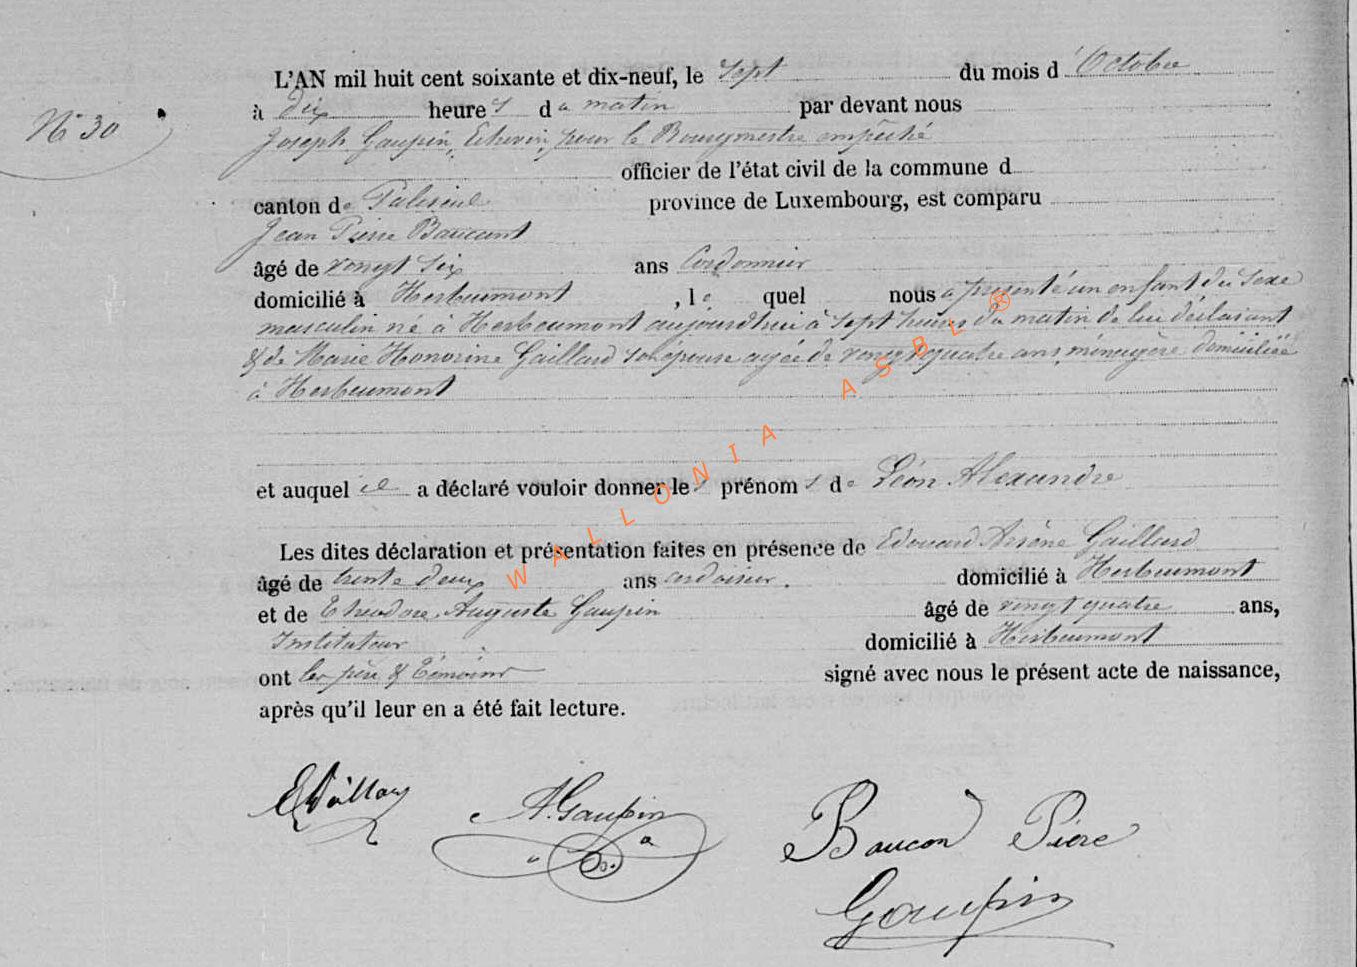 N° 30
L'AN mil huit cent soixante et dix-neuf, le sept du mois d'Octobre
à dix heures du matin par devant nous
Joseph Gaupin, Echevin, pour le Bourgmestre empêché
officier de l'état civil de la commune d
canton de Paliseul province de Luxembourg, est comparu
Jean Pierre Baucant
âgé de vingt six ans Cordonnier
domicilié à Herbeumont, lequel nous a présenté un enfant du sexe
masculin né à Herbeumont aujourd'hui à sept heures du matin de lui déclarant
& de Marie Honorine Gaillard son épouse agée de vingt quatre ans, ménagère domiciliée
à Herbeumont
et auquel il a déclaré vouloir donner les prénoms de Léon Alexandre
Les dites déclaration et présentation faites en présence de Edouard Arsène Gaillard
âgé de trente deux ans ardoisier. domicilié à Herbeumont
et de Théodore Auguste Gaupin âgé de vingt quatre ans,
Instituteur domicilié à Herbeumont
ont les père & témoins signé avec nous le présent acte de naissance,
après qu'il leur en a été fait lecture.
A. Gaupin
Baucon Piere
Gaupin
WALLONIA ASBL ®